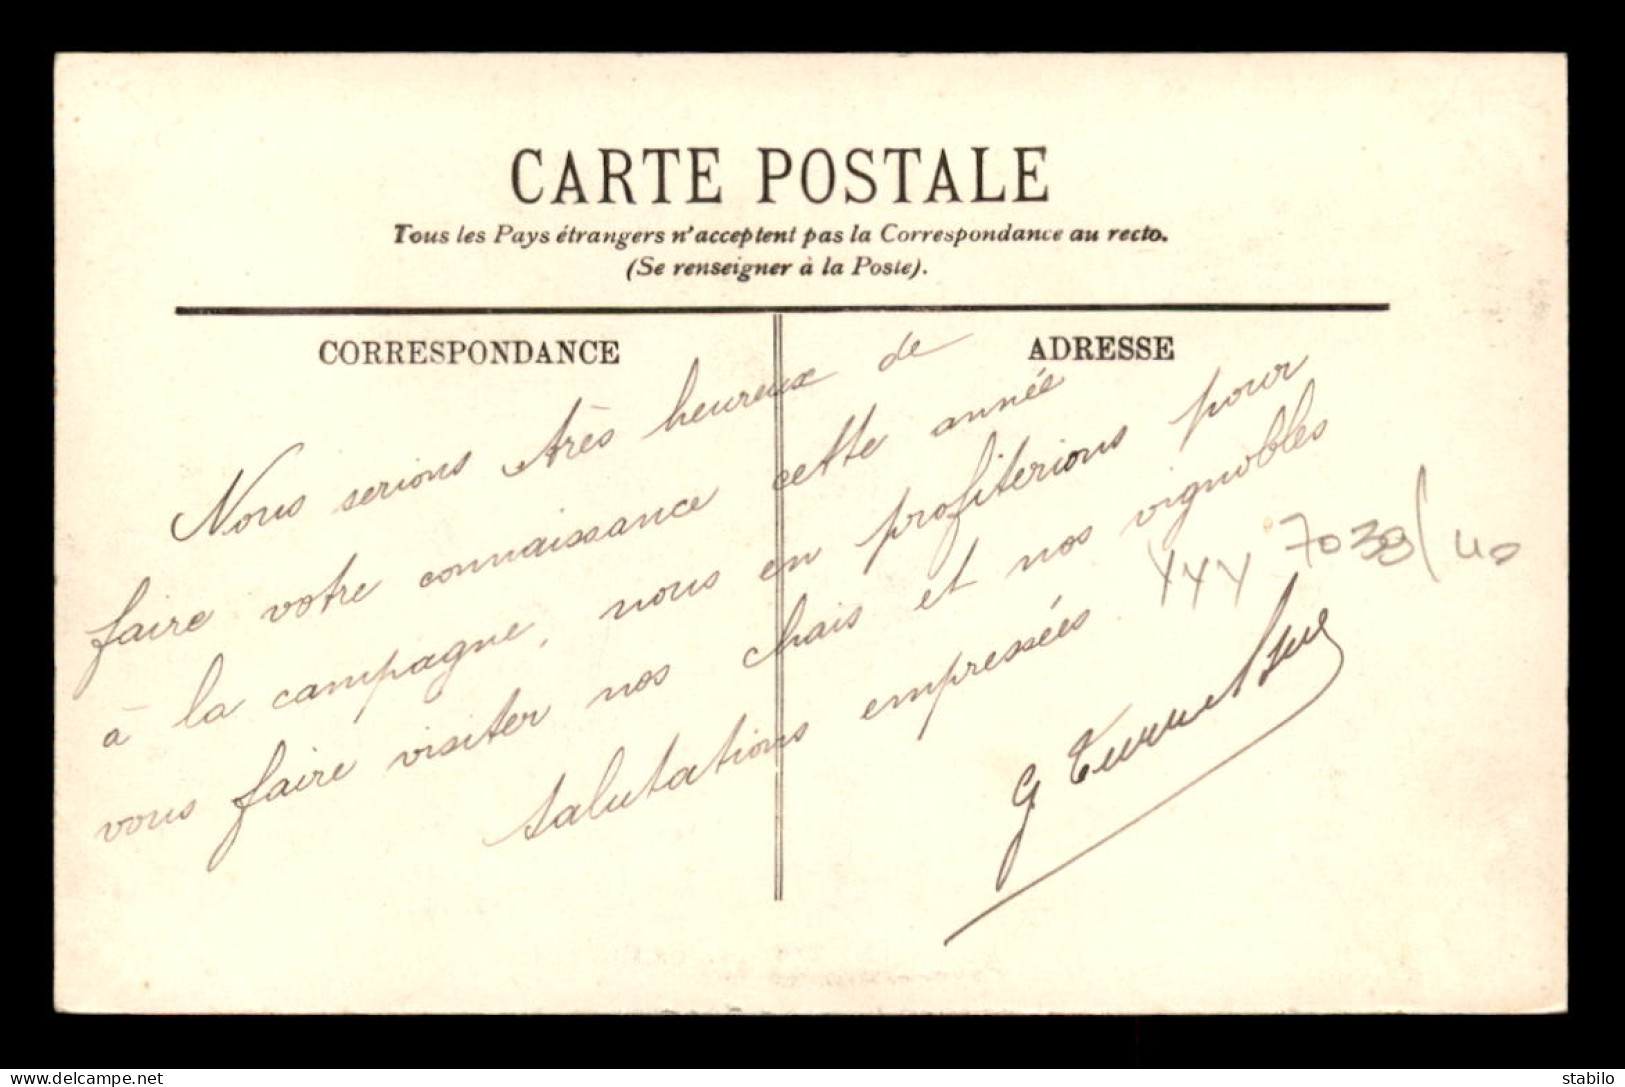 CARTE POSTALE
Tous les Pays étrangers n'acceptent pas la Correspondance au recto.
(Se renseigner à la Poste).
CORRESPONDANCE
ADRESSE
Nous serions très heureux de
faire votre connaissance cette année
à la campagne, nous en profiterions pour
vous faire visiter nos chais et nos vignobles
salutations empressées
YYY 7039/40
G
delcampe.net
stabilo